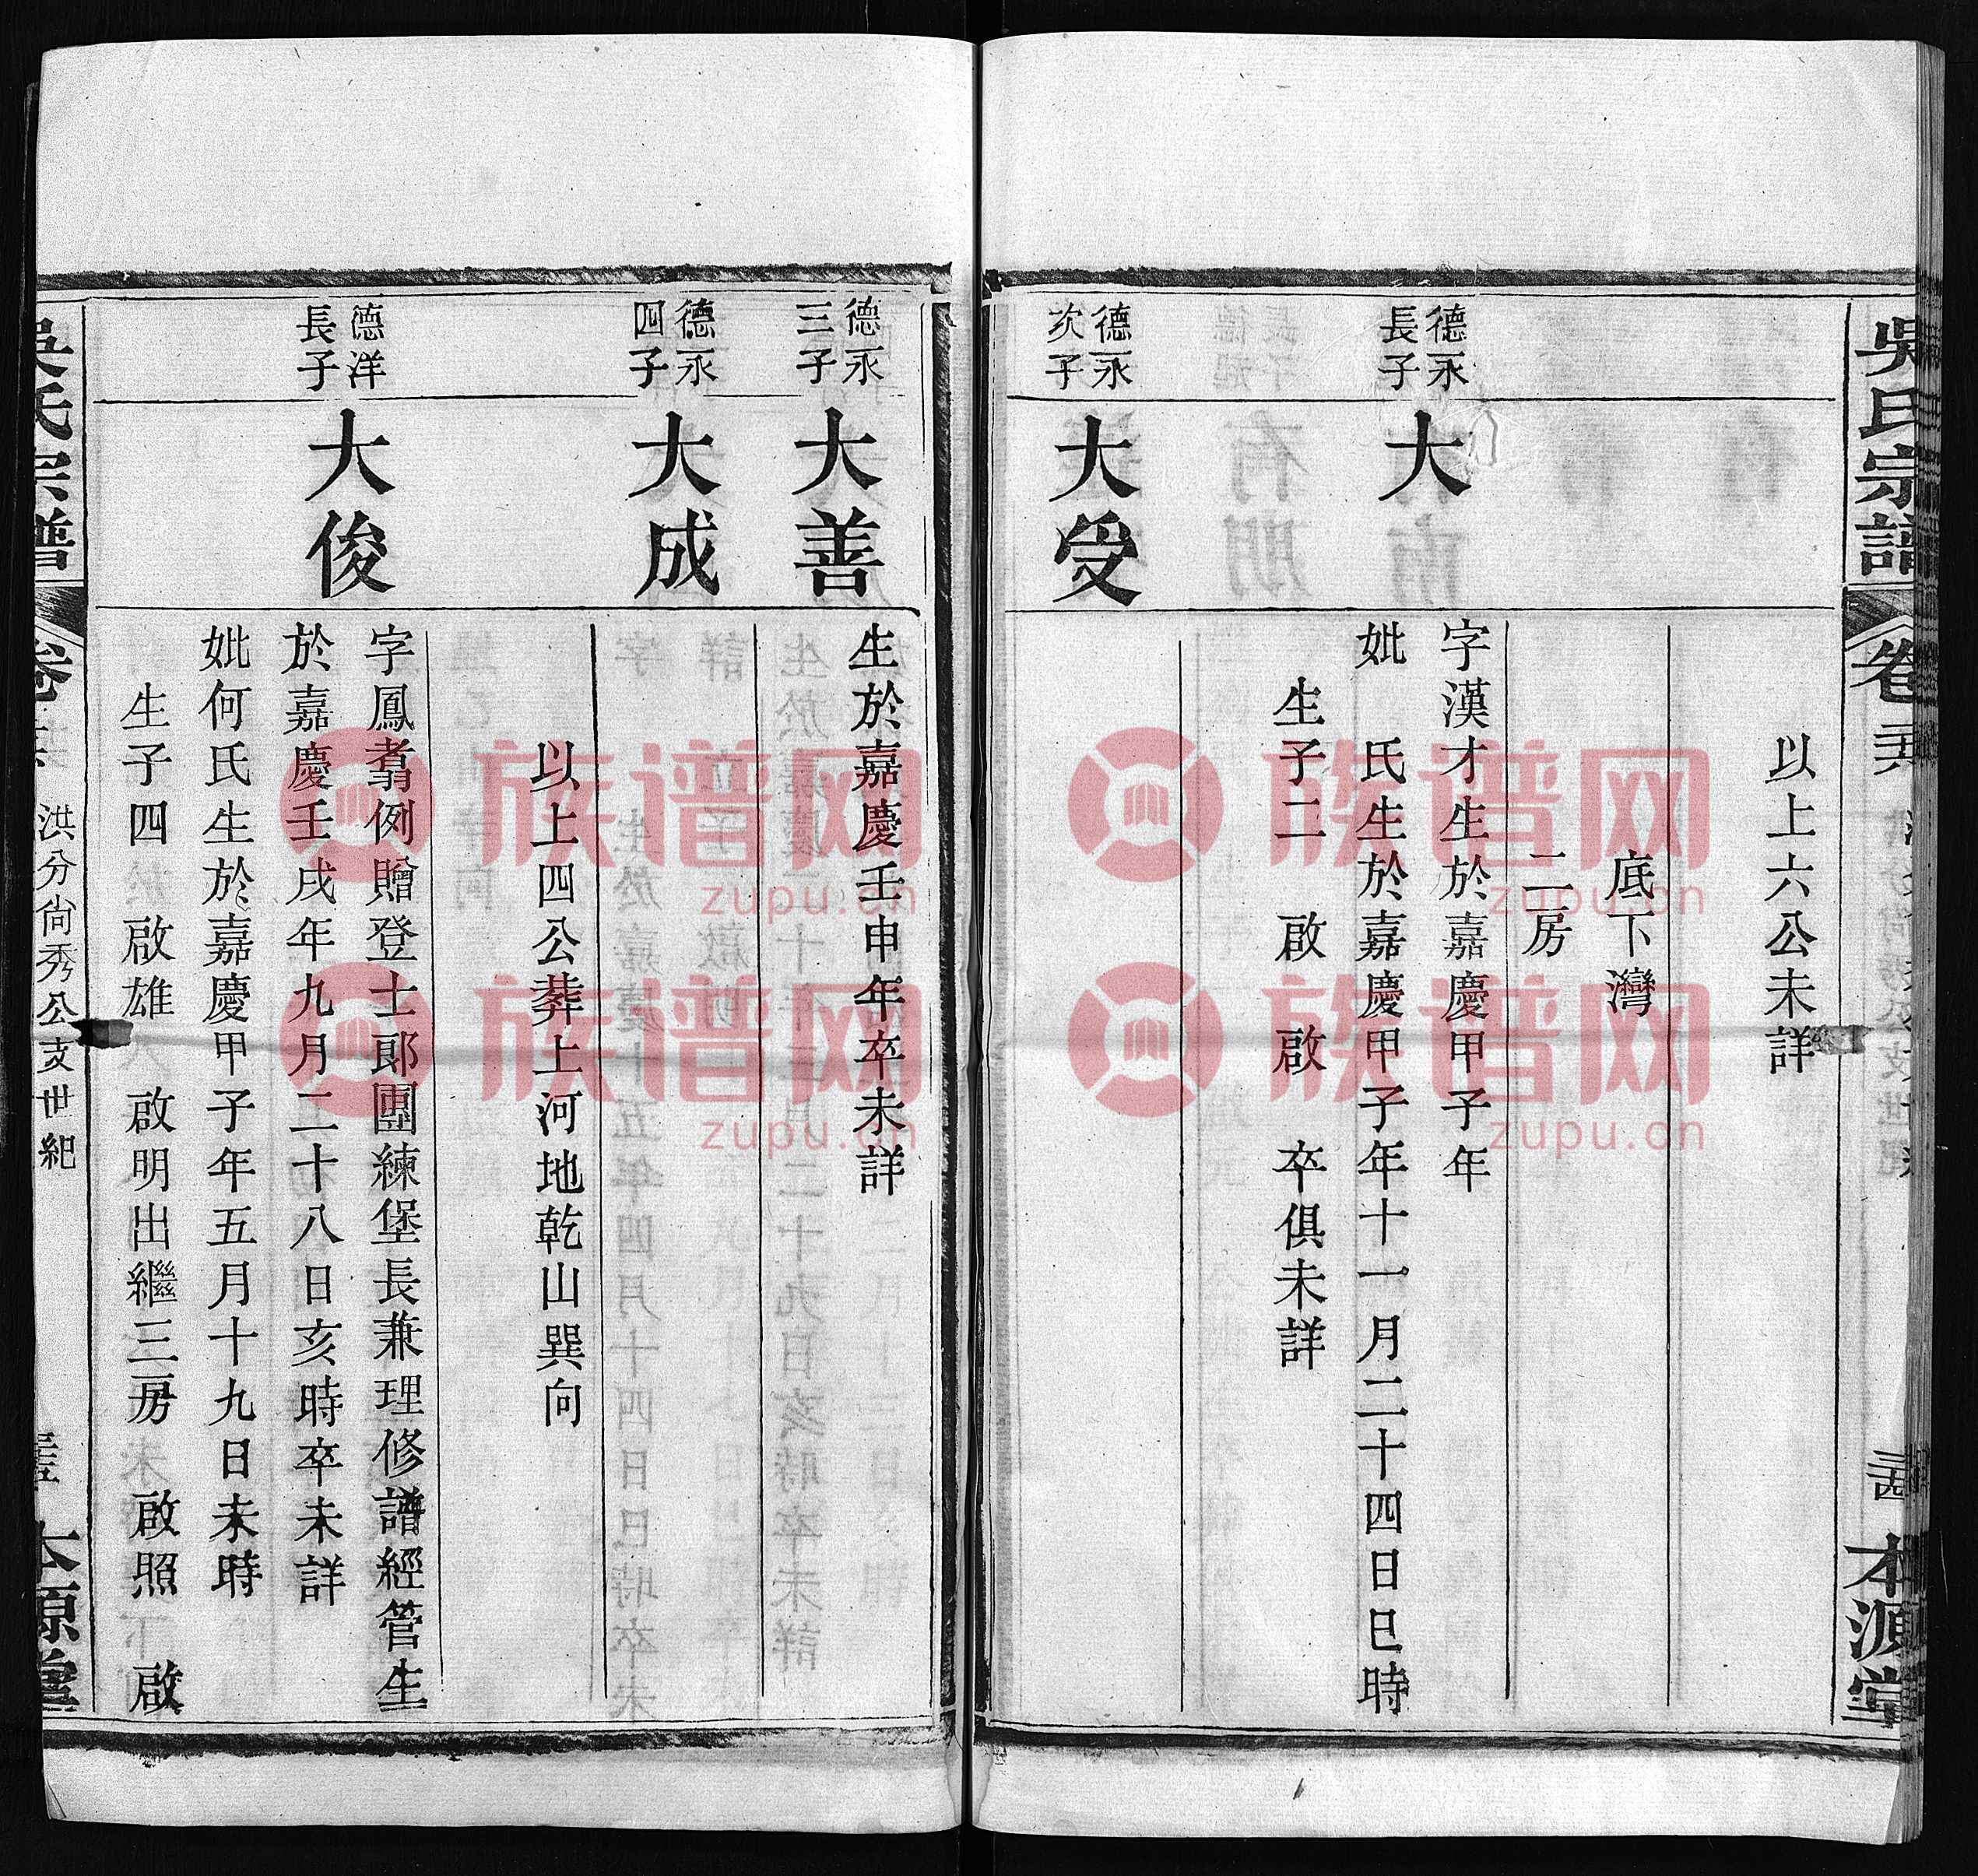 吳氏宗譜
卷
本源堂
以上六公未詳
底下灣
二房
德永
長子
大
字漢才生於嘉慶甲子年
妣 氏生於嘉慶甲子年十一月二十四日巳時
生子二 啟 啟 卒俱未詳
德永
次子
大受
德永
三子
大善
生於嘉慶壬申年卒未詳
德永
四子
大成
以上四公葬上河地乾山巽向
德洋
長子
大俊
字鳳翥例贈登士郎團練堡長兼理修譜經管生
於嘉慶壬戌年九月二十八日亥時卒未詳
妣何氏生於嘉慶甲子年五月十九日未時
生子四 啟雄 啟明出繼三房 啟照 啟
吳氏宗譜
卷
洪分尙秀公支世紀
本源堂
族谱网
zupu.cn
族谱网
zupu.cn
族谱网
zupu.cn
族谱网
zupu.cn